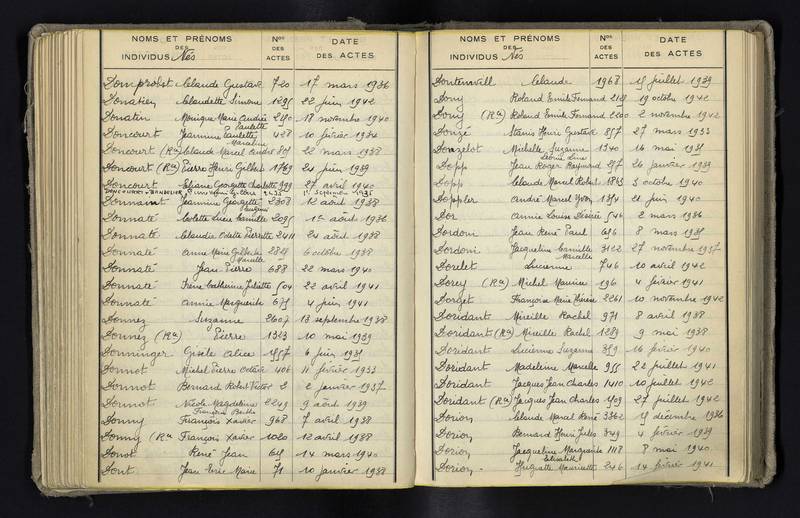 NOMS ET PRÉNOMS
DES
INDIVIDUS Nés
Nos
DES
ACTES
DATE
DES ACTES
Domprobst Claude Gustave 720 17 mars 1936
Donatien Claudette Simone 1295 22 juin 1942
Donatin Monique Marie Andrée 2240 18 novembre 1940
Paulette
Doncourt Jeannine Paulette 428 10 février 1934
Doncourt (Ra) Claude Marcel André 801 22 mars 1938
Doncourt (Ra) Pierre Henri Gilbert 1769 24 juin 1939
Doncourt Eliane Georgette Charlotte 999 27 avril 1940
Donnaint Jeannine Georgette 2308 12 août 1938
Donnaté Colette Lucie Camille 2095 1er août 1936
Donnaté Claudie Odette Pierrette 2411 24 août 1938
Donnaté Anne Marie Gilberte 2828 6 octobre 1938
Marcelle
Donnaté Jean Pierre 688 22 mars 1940
Donnaté Irène Catherine Juliette 504 22 avril 1941
Donnaté Annie Marguerite 675 4 juin 1941
Donnez Suzanne 2607 13 septembre 1938
Donnez (Ra) Pierre 1323 10 mai 1939
Donninger Gisèle Alice 1557 6 juin 1931
Donnot Michel Pierre Octave 406 11 février 1933
Donnot Bernard Robert Victor 2 2 janvier 1937
Donnot Nicole Magdeleine 2249 9 août 1939
Françoise Berthe
Donny François Xavier 968 7 avril 1938
Donny (Ra) François Xavier 1020 12 avril 1938
Donot René Jean 645 14 mars 1940
Dont Jean Eric Marie 71 10 janvier 1938
NOMS ET PRÉNOMS
DES
INDIVIDUS Nés
Nos
DES
ACTES
DATE
DES ACTES
Dontenvill Claude 1968 15 juillet 1939
Dony Roland Emile Fernand 2129 19 octobre 1942
Dony (Ra) Roland Emile Fernand 2200 2 novembre 1942
Donzé Stanis Henri Gustave 857 27 mars 1933
Donzelot Michelle Suzanne 1340 16 mai 1931
Dopp Jean Roger Raymond 257 26 janvier 1939
Dopp Claude Marcel Robert 1865 3 octobre 1940
Doppler André Marcel Yvon 1354 21 juin 1940
Dor Annie Louise Désirée 546 2 mars 1936
Dordoin Jean René Paul 656 8 mars 1931
Dordoni Jacqueline Camille 3122 27 novembre 1937
Marcelle
Dorelet Lucienne 746 10 avril 1942
Dorey (Ra) Michel Maurice 196 4 février 1941
Dorget Françoise Marie Thérèse 2261 10 novembre 1942
Doridant Mireille Rachel 971 8 avril 1938
Doridant (Ra) Mireille Rachel 1289 9 mai 1938
Doridant Lucienne Suzanne 359 16 février 1940
Doridant Madeleine Marcelle 955 22 juillet 1941
Doridant Jacques Jean Charles 1410 10 juillet 1942
Doridant (Ra) Jacques Jean Charles 1509 27 juillet 1942
Dorion Claude Marcel René 3362 15 décembre 1936
Dorion Bernard Henri Jules 349 4 février 1939
Dorion Jacqueline Marguerite 1118 8 mai 1940
Elisabeth
Dorion Huguette Mauricette 246 14 février 1941